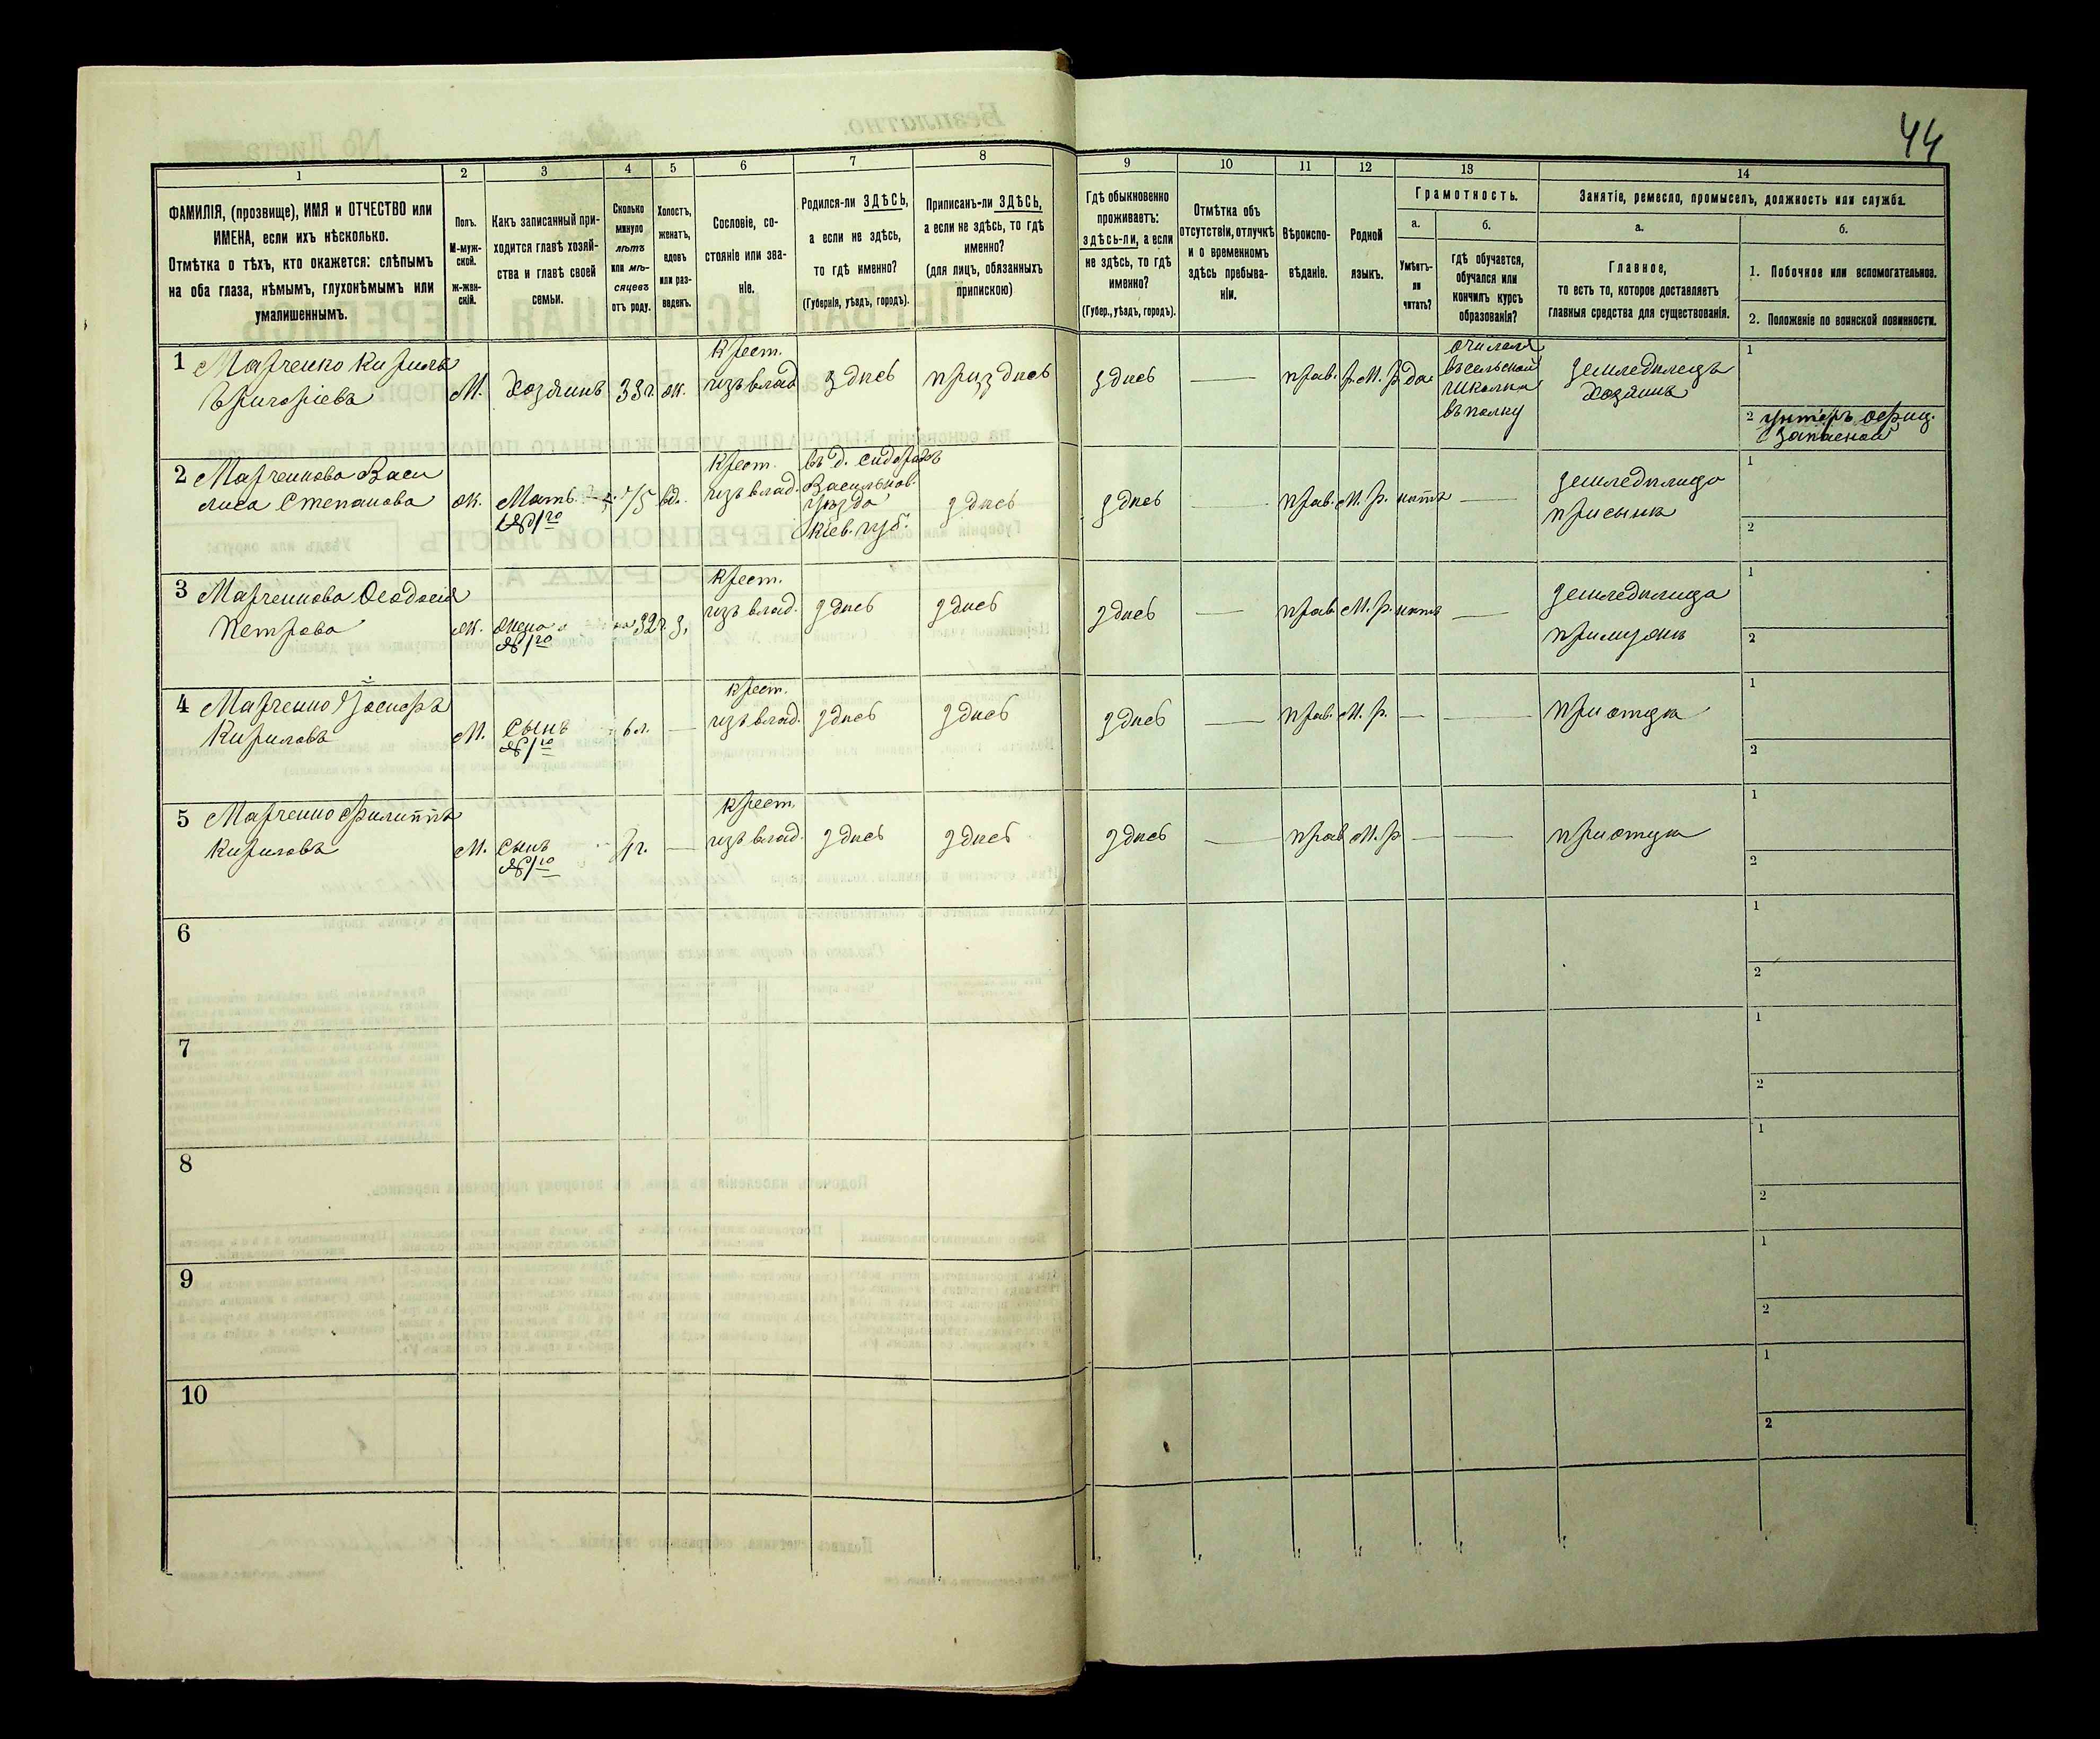 44
1 2 3 4 5 6 7 8 9 10 11 12 13 14
ФАМИЛІЯ, (прозвище), ИМЯ и ОТЧЕСТВО или
ИМЕНА, если ихъ нѣсколько.
Отмѣтка о тѣхъ, кто окажется: слѣпымъ
на оба глаза, нѣмымъ, глухонѣмымъ или
умалишеннымъ.
Полъ.
М-муж-
ской.
Ж-жен-
скій.
Какъ записанный при-
ходится главѣ хозяй-
ства и главѣ своей
семьи.
Сколько
минуло
лѣтъ
или мѣ-
сяцевъ
отъ роду.
Холостъ,
женатъ,
вдовъ
или раз-
веденъ.
Сословіе, со-
стояніе или зва-
ніе.
Родился-ли ЗДѢСЬ,
а если не здѣсь,
то гдѣ именно?
(Губернія, уѣздъ, городъ).
Приписанъ-ли ЗДѢСЬ,
а если не здѣсь, то гдѣ
именно?
(для лицъ, обязанныхъ
припискою)
Гдѣ обыкновенно
проживаетъ:
здѣсь-ли, а если
не здѣсь, то гдѣ
именно?
(Губер., уѣздъ, городъ).
Отмѣтка объ
отсутствіи, отлучкѣ
и о временномъ
здѣсь пребыва-
ніи.
Вѣроиспо-
вѣданіе.
Родной
языкъ.
Грамотность.
а.
Умѣетъ-
ли
читать?
б.
гдѣ обучается,
обучался или
кончилъ курсъ
образованія?
Занятіе, ремесло, промыселъ, должность или служба.
а.
Главное,
то есть то, которое доставляетъ
главныя средства для существованія.
б.
1. Побочное или вспомогательное.
2. Положеніе по воинской повинности.
1 Марченко Кирилъ
Григоріевъ
М. Хозяинъ 33 г. ж.
Крест.
изъ влад здѣсь здѣсь здѣсь — прав. М. р да
въ сельской
въ полку
земледѣлецъ
хозяинъ
1
2 унтеръ офиц.
запасной
2 Марченкова Васи
лиса Степанова
ж. Мать 75 вд.
№ 1го
Крест.
изъ влад.
въ д.
Васильков.
уѣзда
Кіев. губ.
здѣсь здѣсь — прав. М. р. нѣтъ —
земледѣлица
при сынѣ
1
2
3 Марченкова Ѳеодосія
Петрова
ж. жена 32 г з.
№ 1го
Крест.
изъ влад. здѣсь здѣсь здѣсь — прав М. р. нѣтъ —
земледѣлица
при мужѣ
1
2
4 Марченко
Кириловъ
М. Сынъ 6 л. —
№ 1го
Крест.
изъ влад. здѣсь здѣсь здѣсь — прав. М. р. — — при отцѣ
1
2
5 Марченко Филиппъ
Кириловъ
М. Сынъ —
№ 1го
Крест.
изъ влад. здѣсь здѣсь здѣсь — прав М. р — — при отцѣ
1
2
6
1
2
7
1
2
8
1
2
9
1
2
10
1
2